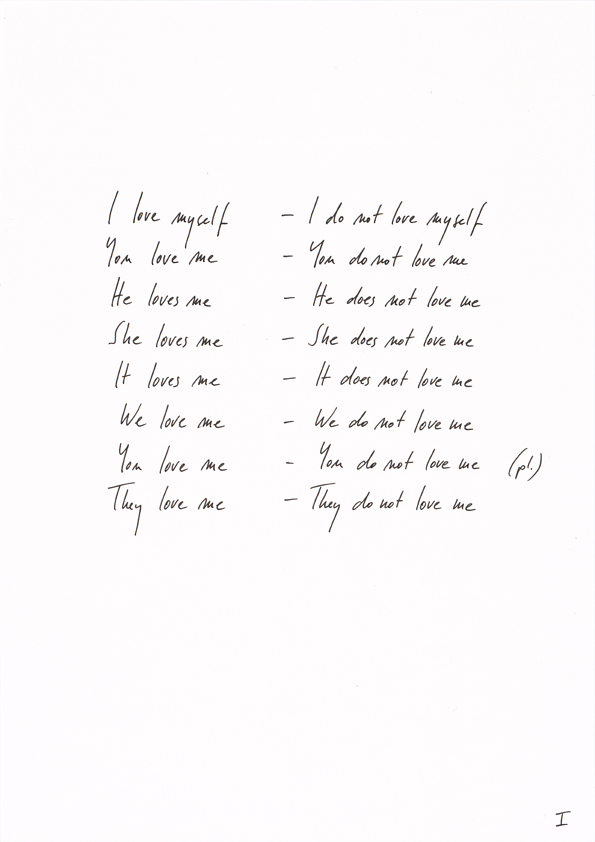 I love myself – I do not love myself
You love me – You do not love me
He loves me – He does not love me
She loves me – She does not love me
It loves me – It does not love me
We love me – We do not love me
You love me – You do not love me (pl.)
They love me – They do not love me
I